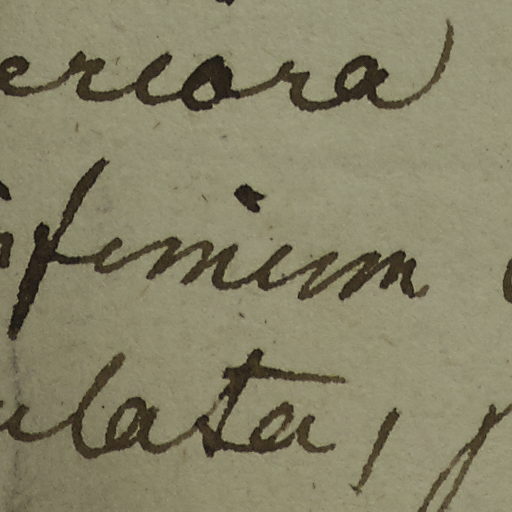 eriora
nfimum
ulata,